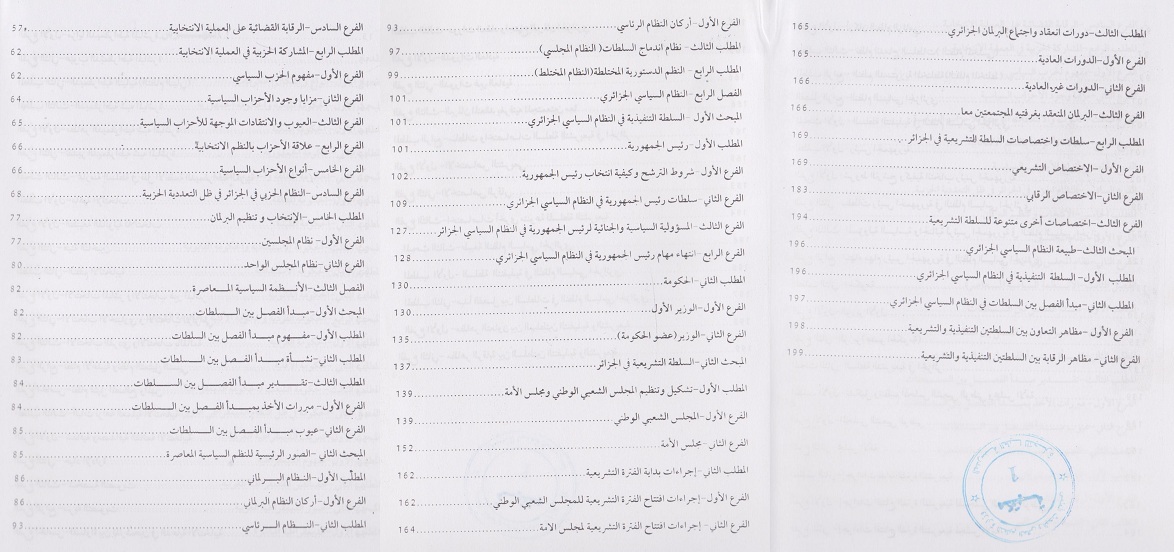 الفرع السادس-الرقابة القضائية على العملية الانتخابية......57
المطلب الرابع-المشاركة الحزبية في العملية الانتخابية......62
الفرع الأول-مفهوم الحزب السياسي......62
الفرع الثاني-مزايا وجود الأحزاب السياسية......64
الفرع الثالث-العيوب والانتقادات الموجهة للأحزاب السياسية......65
الفرع الرابع-علاقة الأحزاب بالنظم الانتخابية......66
الفرع الخامس-أنواع الأحزاب السياسية......66
الفرع السادس-النظام الحزبي في الجزائر في ظل التعددية الحزبية......68
المطلب الخامس-الإنتخاب و تنظيم البرلمان......77
الفرع الأول-نظام المجلسين......77
الفرع الثاني-نظام المجلس الواحد......80
الفصل الثالث-الأنظمة السياسية المعاصرة......82
المبحث الأول-مبدأ الفصل بين السلطات......82
المطلب الأول-مفهوم مبدأ الفصل بين السلطات......82
المطلب الثاني-نشأة مبدأ الفصل بين السلطات......83
المطلب الثالث-تقدير مبدأ الفصل بين السلطات......84
الفرع الأول-مبررات الأخذ بمبدأ الفصل بين السلطات......84
الفرع الثاني-عيوب مبدأ الفصل بين السلطات......85
المبحث الثاني-الصور الرئيسية للنظم السياسية المعاصرة......85
المطلب الأول-النظام البرلماني......86
الفرع الأول-أركان النظام البرلماني......86
المطلب الثاني-النظام الرئاسي......93
الفرع الأول-أركان النظام الرئاسي......93
المطلب الثالث- نظام اندماج السلطات( النظام المجلسي)......97
المطلب الرابع- النظم الدستورية المختلطة(النظام المختلط)......99
الفصل الرابع-النظام السياسي الجزائري......101
المبحث الأول-السلطة التنفيذية في النظام السياسي الجزائري......101
المطلب الأول-رئيس الجمهورية......101
الفرع الأول-شروط الترشح وكيفية انتخاب رئيس الجمهورية......102
الفرع الثاني-سلطات رئيس الجمهورية في النظام السياسي الجزائري......109
الفرع الثالث-المسؤولية السياسية والجنائية لرئيس الجمهورية في النظام السياسي الجزائر......127
الفرع الرابع-انتهاء مهام رئيس الجمهورية في النظام السياسي الجزائري......128
المطلب الثاني-الحكومة......130
الفرع الأول-الوزير الأول......130
الفرع الثاني-الوزير(عضو الحكومة)......135
المبحث الثاني-السلطة التشريعية في الجزائر......137
المطلب الأول-تشكيل وتنظيم المجلس الشعبي الوطني ومجلس الأمة......139
الفرع الأول-المجلس الشعبي الوطني......139
الفرع الثاني-مجلس الأمة......152
المطلب الثاني-إجراءات بداية الفترة التشريعية......162
الفرع الأول-إجراءات افتتاح الفترة التشريعية للمجلس الشعبي الوطني......162
الفرع الثاني-إجراءات افتتاح الفترة التشريعية لمجلس الامة......164
المطلب الثالث-دورات انعقاد واجتماع البرلمان الجزائري......165
الفرع الأول-الدورات العادية......165
الفرع الثاني-الدورات غير العادية......166
الفرع الثالث-البرلمان المنعقد بغرفتيه المجتمعتين معا......166
المطلب الرابع-سلطات واختصاصات السلطة التشريعية في الجزائر......169
الفرع الأول-الاختصاص التشريعي......169
الفرع الثاني-الاختصاص الرقابي......183
الفرع الثالث-اختصاصات أخرى متنوعة للسلطة التشريعية......194
المبحث الثالث-طبيعة النظام السياسي الجزائري......196
المطلب الأول-السلطة التنفيذية في النظام السياسي الجزائري......196
المطلب الثاني-مبدأ الفصل بين السلطات في النظام السياسي الجزائري......197
الفرع الأول-مظاهر التعاون بين السلطتين التنفيذية والتشريعية......198
الفرع الثاني-مظاهر الرقابة بين السلطتين التنفيذية والتشريعية......199